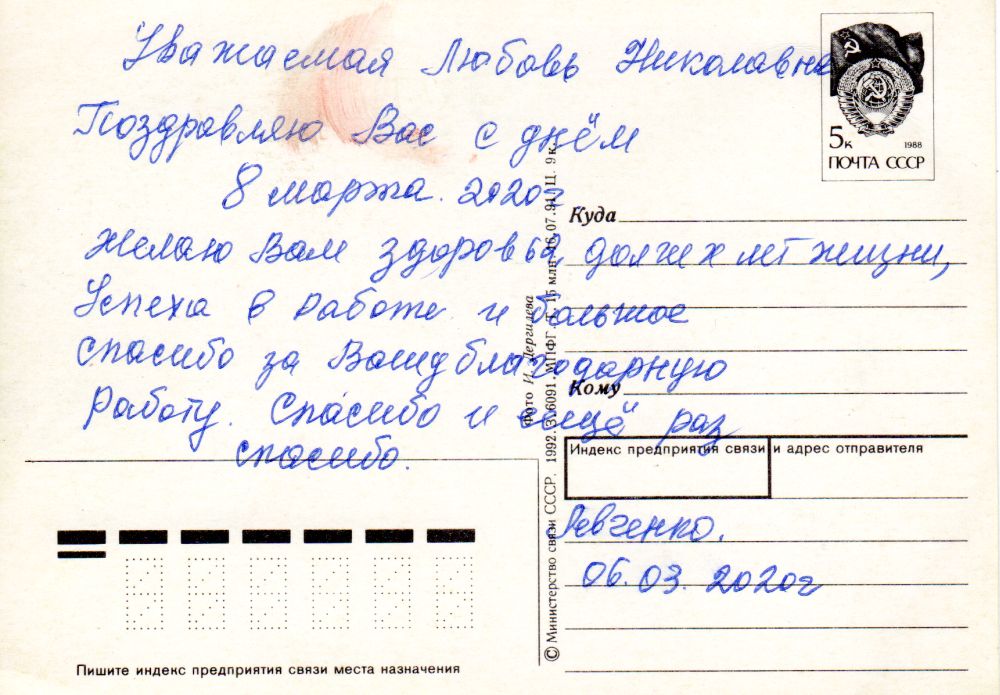 Уважаемая Любовь Николавна
5к 1988
ПОЧТА СССР
Поздравляю Вас с днём
8 марта. 2020г
Куда
Желаю Вам здоровья, долгих лет жизни,
Успеха в работе и большое
спасибо за Вашу благодарную
Кому
работу. Спасибо и ещё раз
спасибо.
Индекс предприятия связи и адрес отправителя
Левченко.
06.03.2020г
Пишите индекс предприятия связи места назначения
Фото И. Дергилева
© Министерство связи СССР. 1992. З. 6091. МПФГ. Т. 15 млн. 16.07.91. Ц. 9 к.